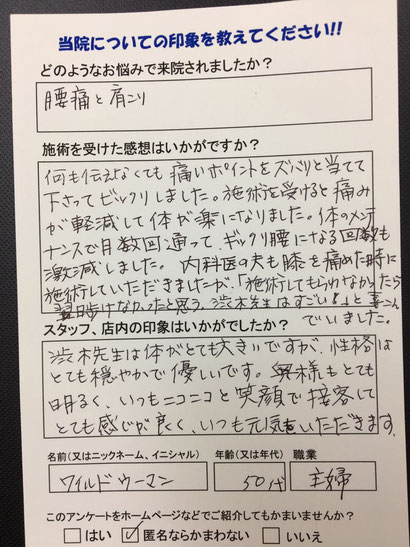 当院についての印象を教えてください!!
どのようなお悩みで来院されましたか?
腰痛と肩こり
施術を受けた感想はいかがですか?
何も伝えなくても痛いポイントをズバリと当てて
下さってビックリしました。施術を受けると痛み
が軽減して体が楽になりました。体のメンテ
ナンスで月数回通って、ギックリ腰になる回数も
激減しました。内科医の夫も膝を痛めた時に
施術していただきましたが、「施術してもらわなかったら
翌日歩けなかったと思う。渋木先生はすごい!」と喜こん
でいました。
スタッフ、店内の印象はいかがでしたか?
渋木先生は体がとても大きいですが、性格は
とても穏やかで優しいです。奥様もとても
明るく、いつもニコニコと笑顔で接客して
とても感じが良く、いつも元気をいただきます。
名前(又はニックネーム、イニシャル) 年齢(又は年代) 職業
ワイルドウーマン 50代 主婦
このアンケートをホームページなどでご紹介してもかまいませんか?
はい 匿名ならかまわない いいえ